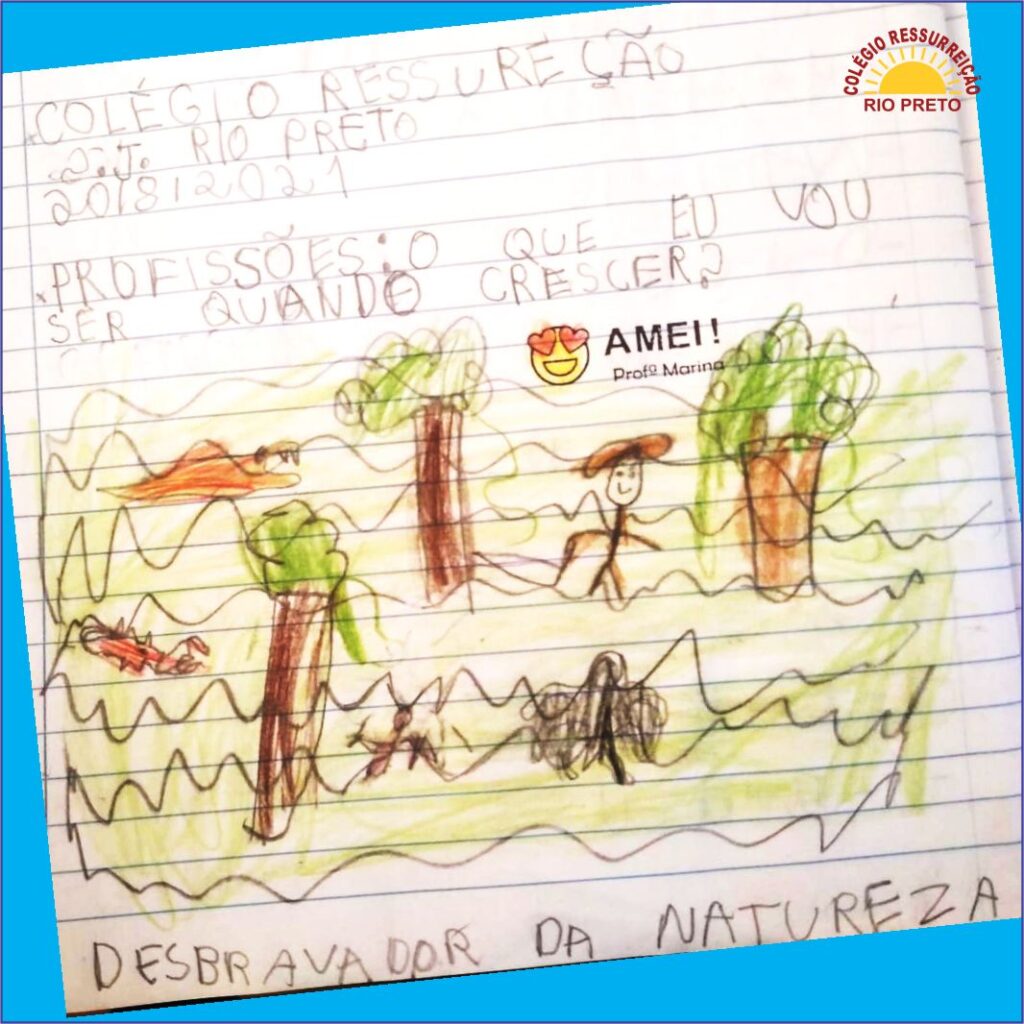 COLÉGIO RESSURREIÇÃO
RIO PRETO
COLÉGIO RESSUREÇÃO
S.J. RIO PRETO
20/8/2021
PROFISSÕES: O QUE EU VOU
SER QUANDO CRESCER?
AMEI!
Profª Marina
DESBRAVADOR DA NATUREZA